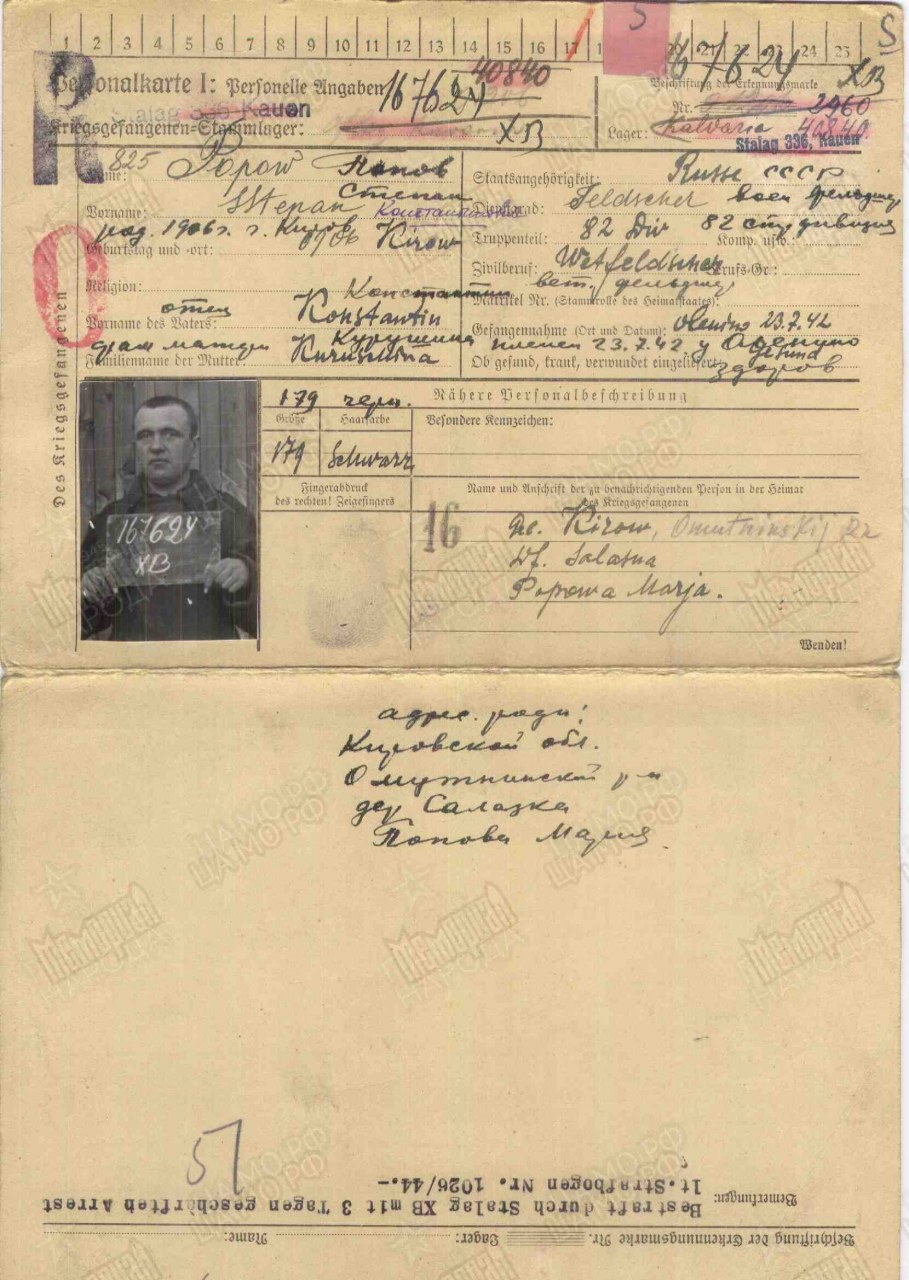 1 2 3 4 5 6 7 8 9 10 11 12 13 14 15 16 17 24 25
S
S
Personalkarte I: Personelle Angaben
167624
40840
167624 XB
Beschriftung der Erkennungsmarke
Stalag 336 Kauen
Nr. 2460
Kriegsgefangenen-Stammlager:
XB
Lager: Kalvaria 40840
Stalag 336, Kauen
825
Name: Popow Попов
Степан
Vorname: Sstepan Константинович
род. 1906 г. г. Киров 1906 Kirow
Geburtstag und -ort:
Religion:
отец Константин
Vorname des Vaters: Konstantin
фам матери Курушина
Familienname der Mutter: Kuruschina
Staatsangehörigkeit: Russe СССР
Dienstgrad: Feldscher воен фельдшер
Truppenteil: 82 Div 82 стр дивизия
Komp. usw.:
Zivilberuf: Wetfeldscher Berufs-Gr.:
вет. фельдшер
Matrikel Nr. (Stammrolle des Heimatstaates):
Gefangennahme (Ort und Datum): Olenino 23.7.42
пленен 23.7.42 у Оленино
Ob gesund, krank, verwundet eingeliefert: gesund
здоров
Des Kriegsgefangenen
179 черн.
Nähere Personalbeschreibung
Größe Haarfarbe
Besondere Kennzeichen:
179 Schwarz
Fingerabdruck
des rechten! Zeigefingers
Name und Anschrift der zu benachrichtigenden Person in der Heimat
des Kriegsgefangenen
167624
XB
16
Kirow, Omutninskij
Df. Salaska
Popowa Marja.
Wenden!
адрес. роди:
Кировской обл.
Омутнинский р-н
дер Салазка
Попова Мария
57
Bemerkungen:
Bestraft durch Stalag XB mit 3 Tagen geschärften Arrest
lt.Strafbogen Nr. 1026/44.-
Name:
Lager:
Beschriftung der Erkennungsmarke Nr.
МЕМОРИАЛ
НАРОДА
ЦАМО РФ